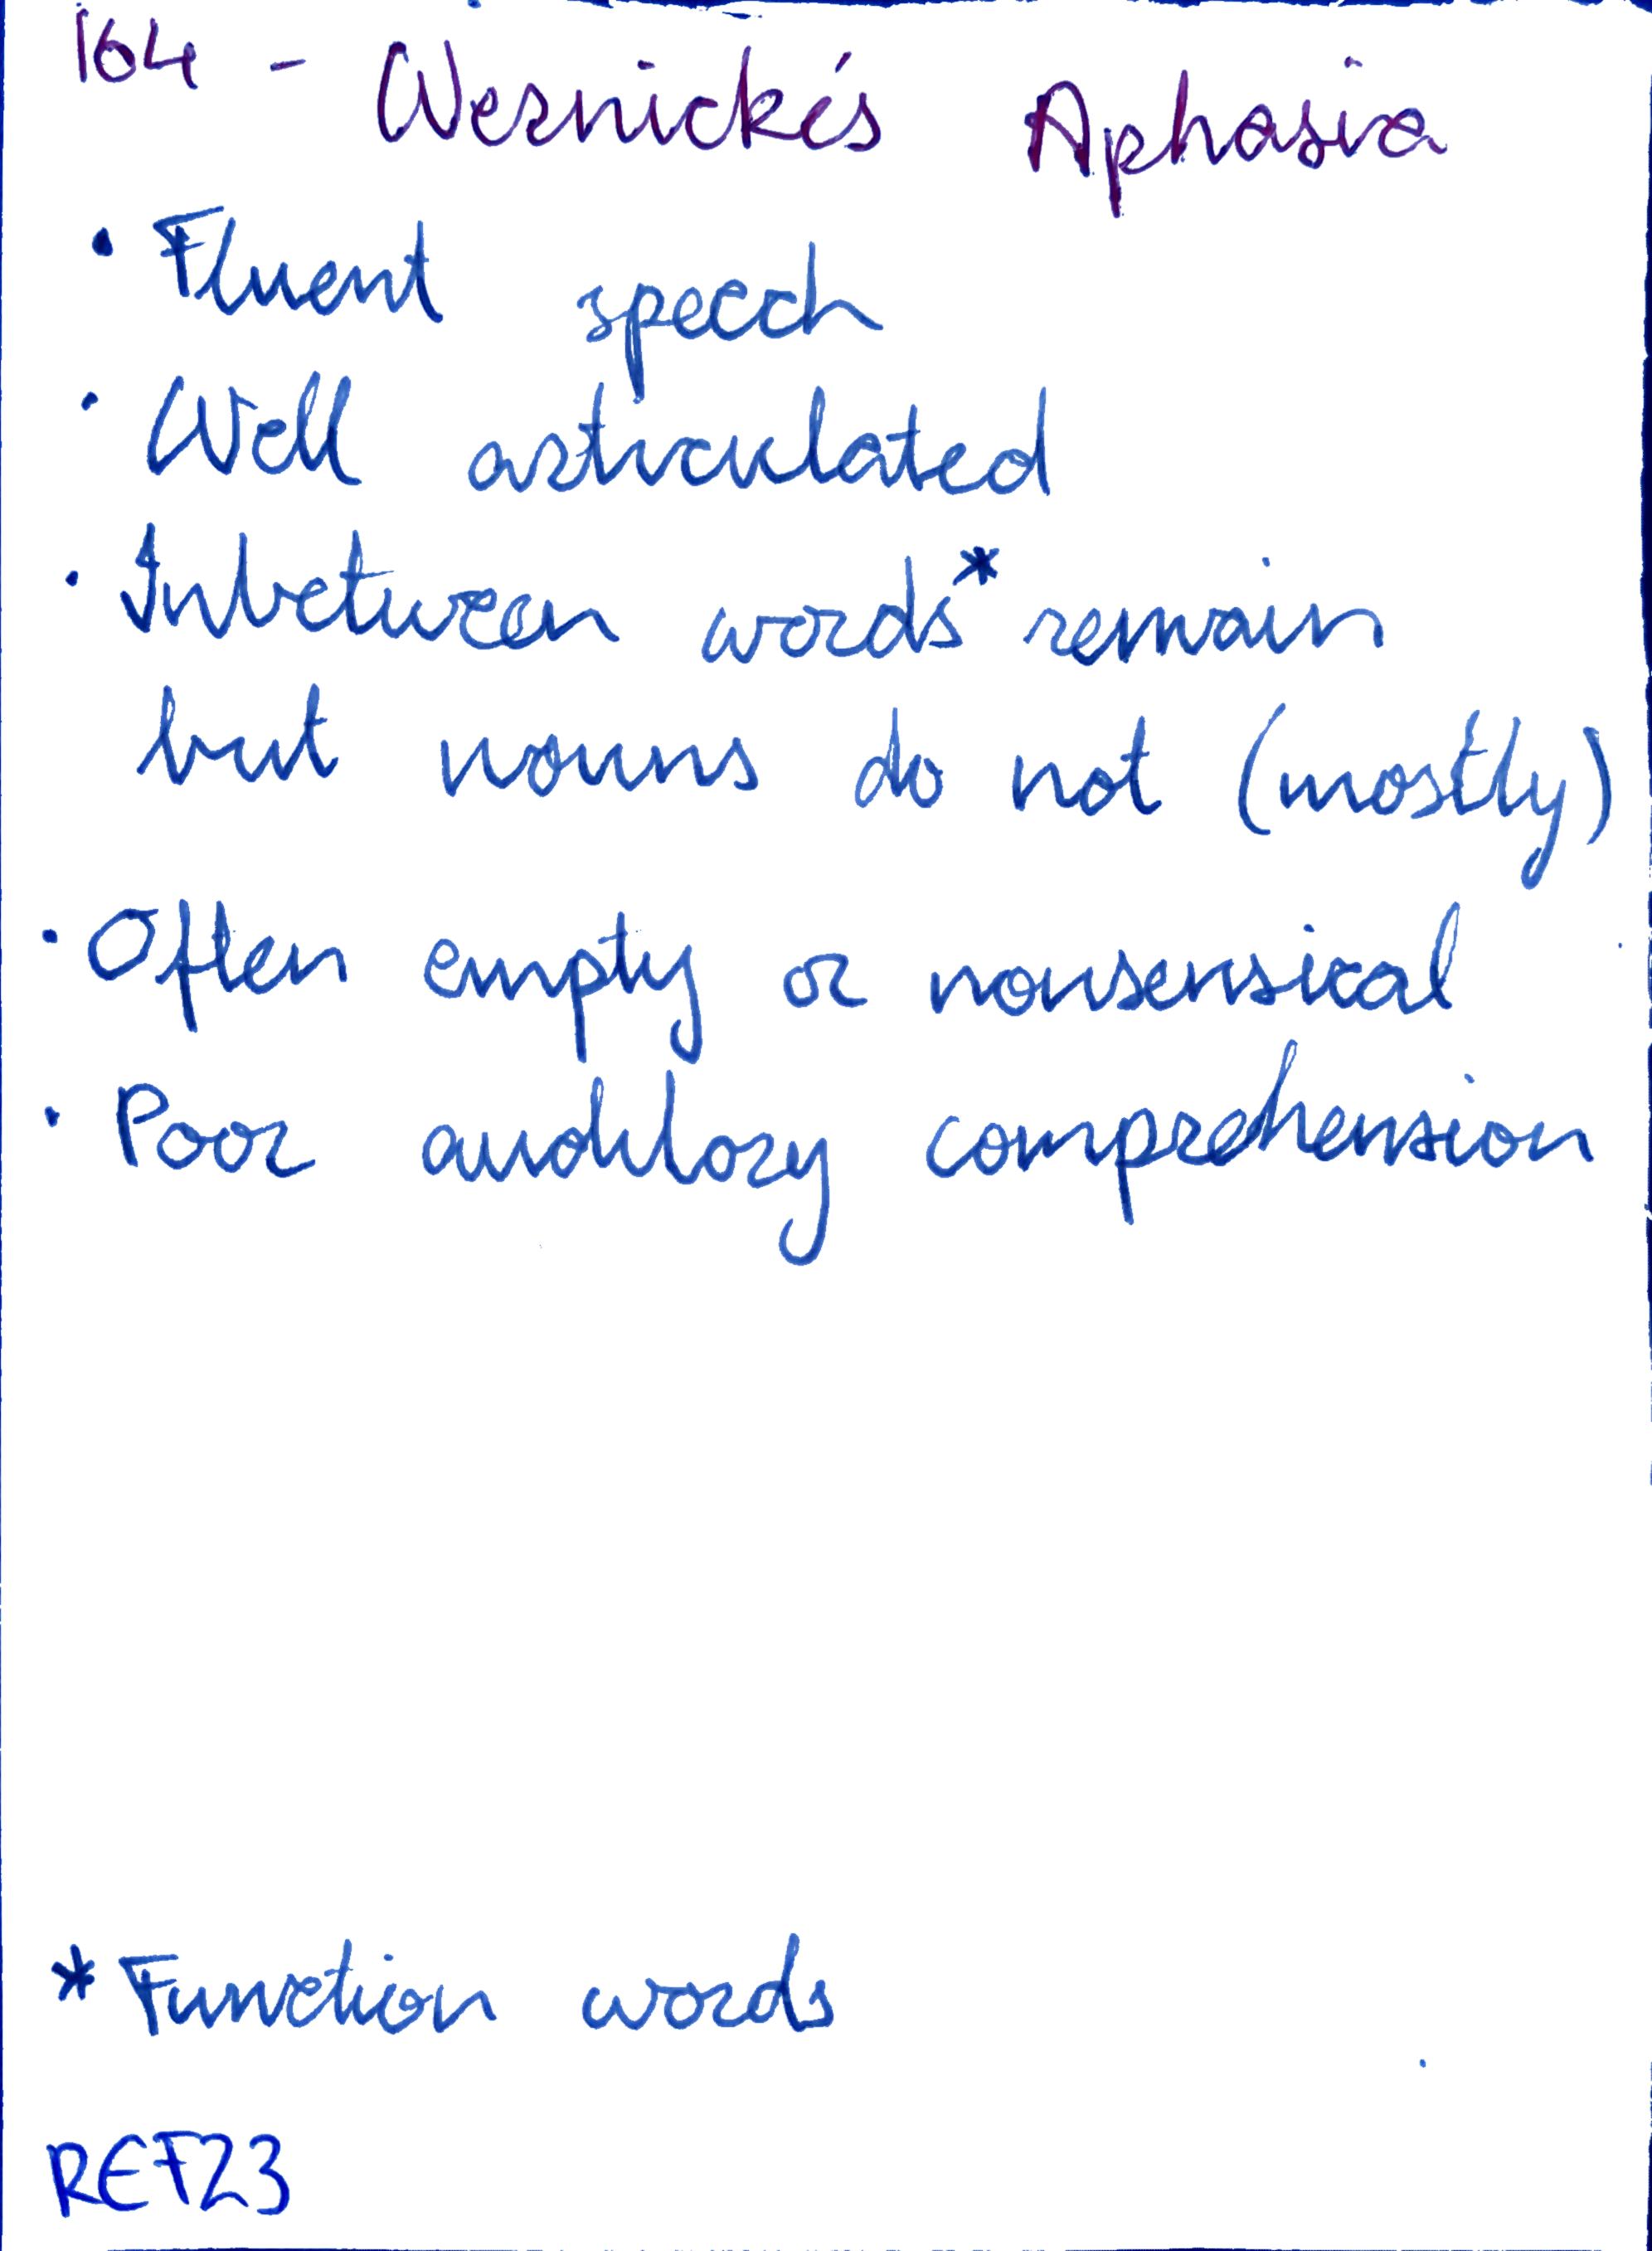 164 - Wernicke's Aphasia
• Fluent speech
• Well articulated
• Inbetween words* remain
but nouns do not (mostly)
• Often empty or nonsensical
• Poor auditory comprehension
* Function words
REF23